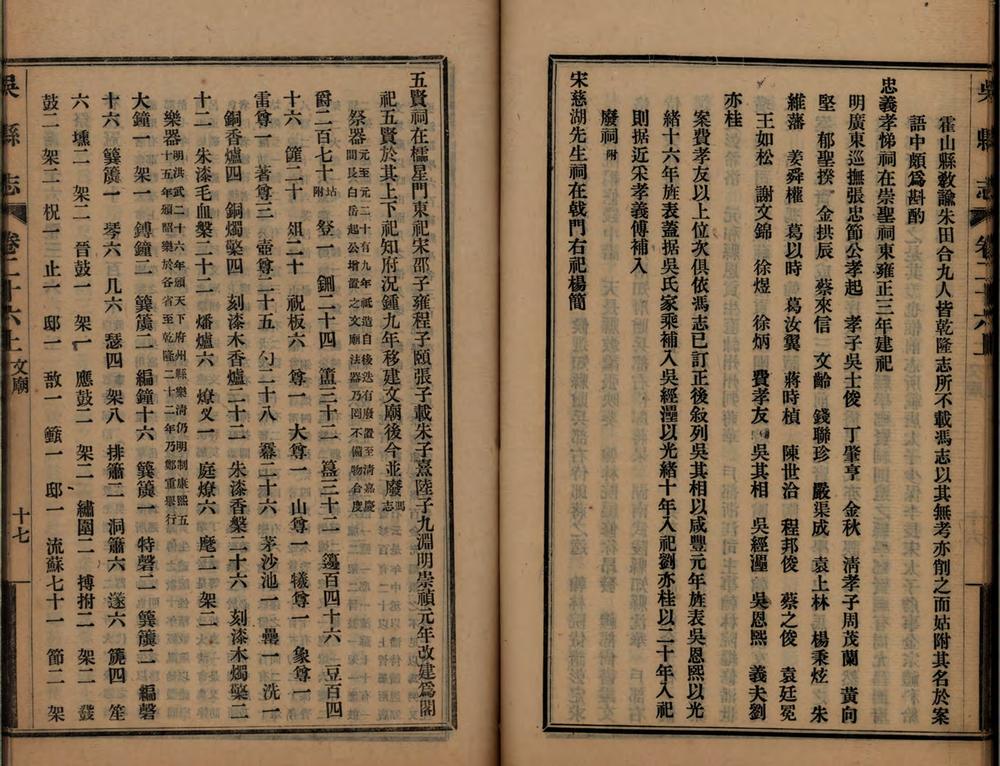 吳縣志 卷二十六上
霍山縣教諭朱田合九人皆乾隆志所不載馮志以其無考亦削之而姑附其名於案
語中頗爲斟酌
忠義孝悌祠在崇聖祠東雍正三年建祀
明廣東巡撫張忠節公孝起 孝子吳士俊 丁肇亨 金秋 淸孝子周茂蘭 黃向
堅 郁聖揆 金拱辰 蔡來信 文齡 錢聯珍 嚴渠成 袁上林 楊秉炫 朱
維藩 姜舜權 葛以時 葛汝翼 蔣時楨 陳世治 程邦俊 蔡之俊 袁廷冕
王如松 謝文錦 徐煜 徐炳 費孝友 吳其相 吳經湮 吳恩熙 義夫劉
亦桂
案費孝友以上位次俱依馮志已訂正後敍列吳其相以咸豐元年旌表吳恩熙以光
緒十六年旌表蓋据吳氏家乘補入吳經湮以光緒十年入祀劉亦桂以二十年入祀
則据近宋孝義傳補入
廢祠附
宋慈湖先生祠在戟門右祀楊簡
五賢祠在櫺星門東祀宋邵子雍程子頤張子載朱子熹陸子九淵明崇禎元年改建爲閣
祀五賢於其上下祀知府況鍾九年移建文廟後今並廢馮志
祭器元至元二十有九年祗造自後迭有廢置至清嘉慶間長白岳起公增置之文廟法器乃罔不備物合度
爵二百七十坫附 豋一 鉶二十四 簠三十二 簋三十二 籩百四十六 豆百四
十六 篚二十 俎二十 祝板六 尊一 大尊一 山尊一 犧尊一 象尊一
雷尊一 著尊三 壺尊二十五 勺二十八 羃二十六 茅沙池一 罍一 洗一
銅香爐四 銅燭檠四 刻漆木香爐二十二 朱漆香槃二十六 刻漆木燭檠二
十二 朱漆毛血槃二十二 燔爐六 燎叉一 庭燎六 麾二 架二
樂器明洪武二十六年頒天下府州縣樂淸仍明制康熙五十五年頒韶樂於各省至乾隆二十二年乃鄭重舉行
大鐘一 架一 鎛鐘二 簨簴二 編鐘十六 簨簴一 特磬二 簨簴二 編磬
十六 簨簴一 琴六 几六 瑟四 架八 排簫二 洞簫六 篴六 篪四 笙
六 壎二 架二 晉鼓一 架一 應鼓二 架二 繡圍二 搏拊二 架二 鼗
鼓二 架二 柷一 止一 邸一 敔一 籈一 邸一 流蘇七十一 節二 架
吳縣志 卷二十六上 文廟 十七